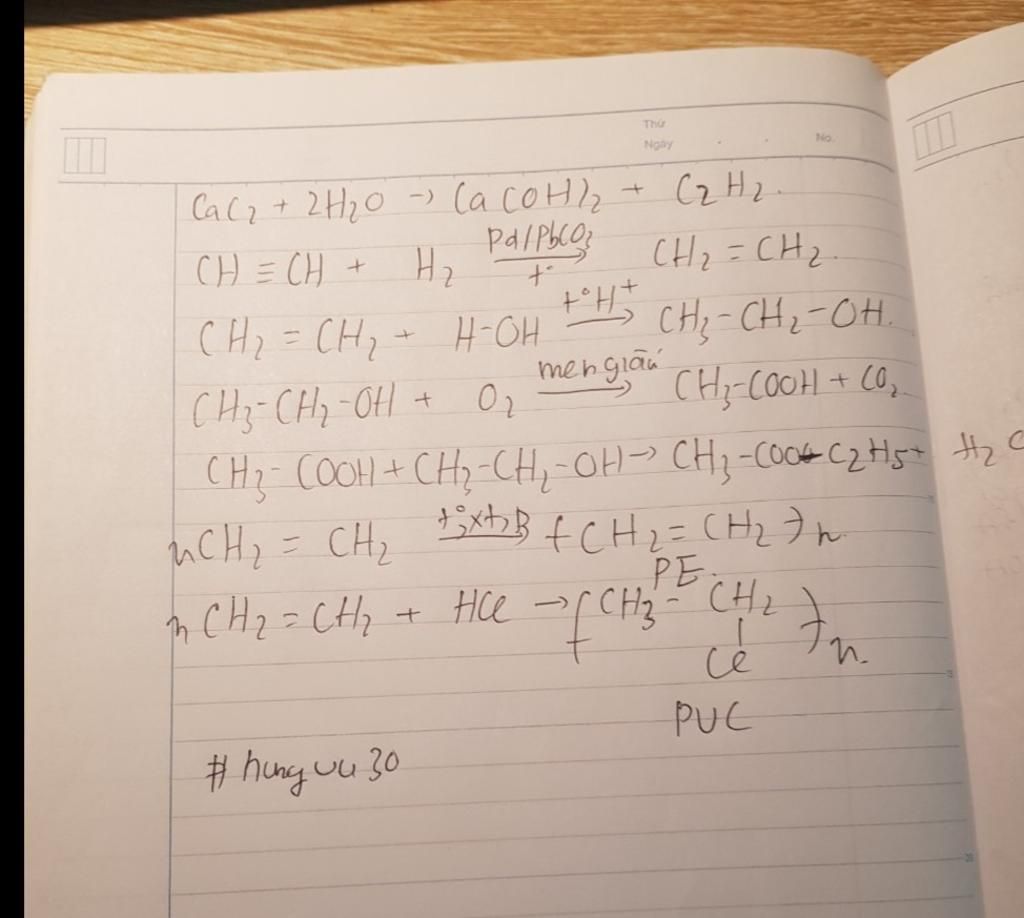 Thứ
Ngày . . No.
CaC₂ + 2H₂O → Ca(OH)₂ + C₂H₂.
CH ≡ CH + H₂ Pd/PbCO₃ t° → CH₂ = CH₂.
CH₂ = CH₂ + H-OH t° H⁺ → CH₃-CH₂-OH.
CH₃-CH₂-OH + O₂ men giấm → CH₃-COOH + CO₂
CH₃-COOH + CH₃-CH₂-OH → CH₃-COO-C₂H₅ + H₂O
nCH₂ = CH₂ t°, xt, P → (CH₂ = CH₂)n
PE.
nCH₂ = CH₂ + HCl → (CH₃ - CH₂)n.
Cl
PVC
# hungvu30